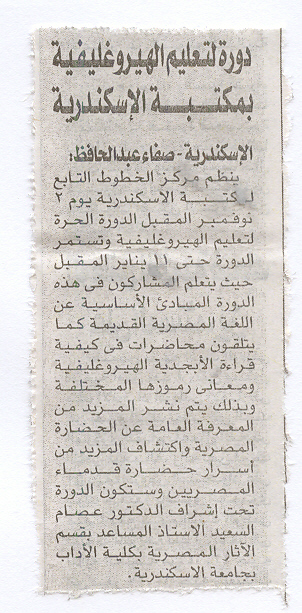 دورة لتعليم الهيروغليفية
بمكتبة الإسكندرية
الإسكندرية - صفاء عبدالحافظ:
ينظم مركز الخطوط التابع
لمكتبة الاسكندرية يوم ٢
نوفمبر المقبل الدورة الحرة
لتعليم الهيروغليفية وتستمر
الدورة حتى ١١ يناير المقبل
حيث يتعلم المشاركون فى هذه
الدورة المبادئ الأساسية عن
اللغة المصرية القديمة كما
يتلقون محاضرات فى كيفية
قراءة الأبجدية الهيروغليفية
ومعانى رموزها المختلفة
وبذلك يتم نشر المزيد من
المعرفة العامة عن الحضارة
المصرية واكتشاف المزيد من
أسرار حضارة قدماء
المصريين وستكون الدورة
تحت إشراف الدكتور عصام
السعيد الاستاذ المساعد بقسم
الآثار المصرية بكلية الآداب
بجامعة الاسكندرية.